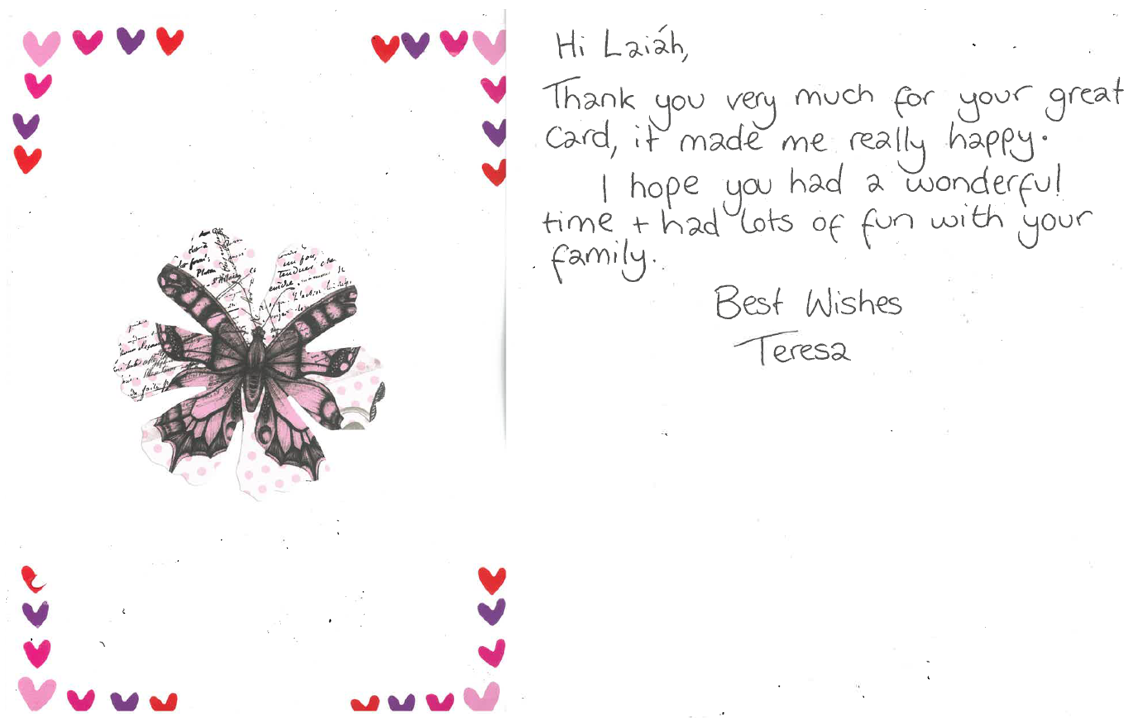 Hi Laiáh,
Thank you very much for your great
card, it made me really happy.
I hope you had a wonderful
time + had lots of fun with your
family.
Best Wishes
Teresa